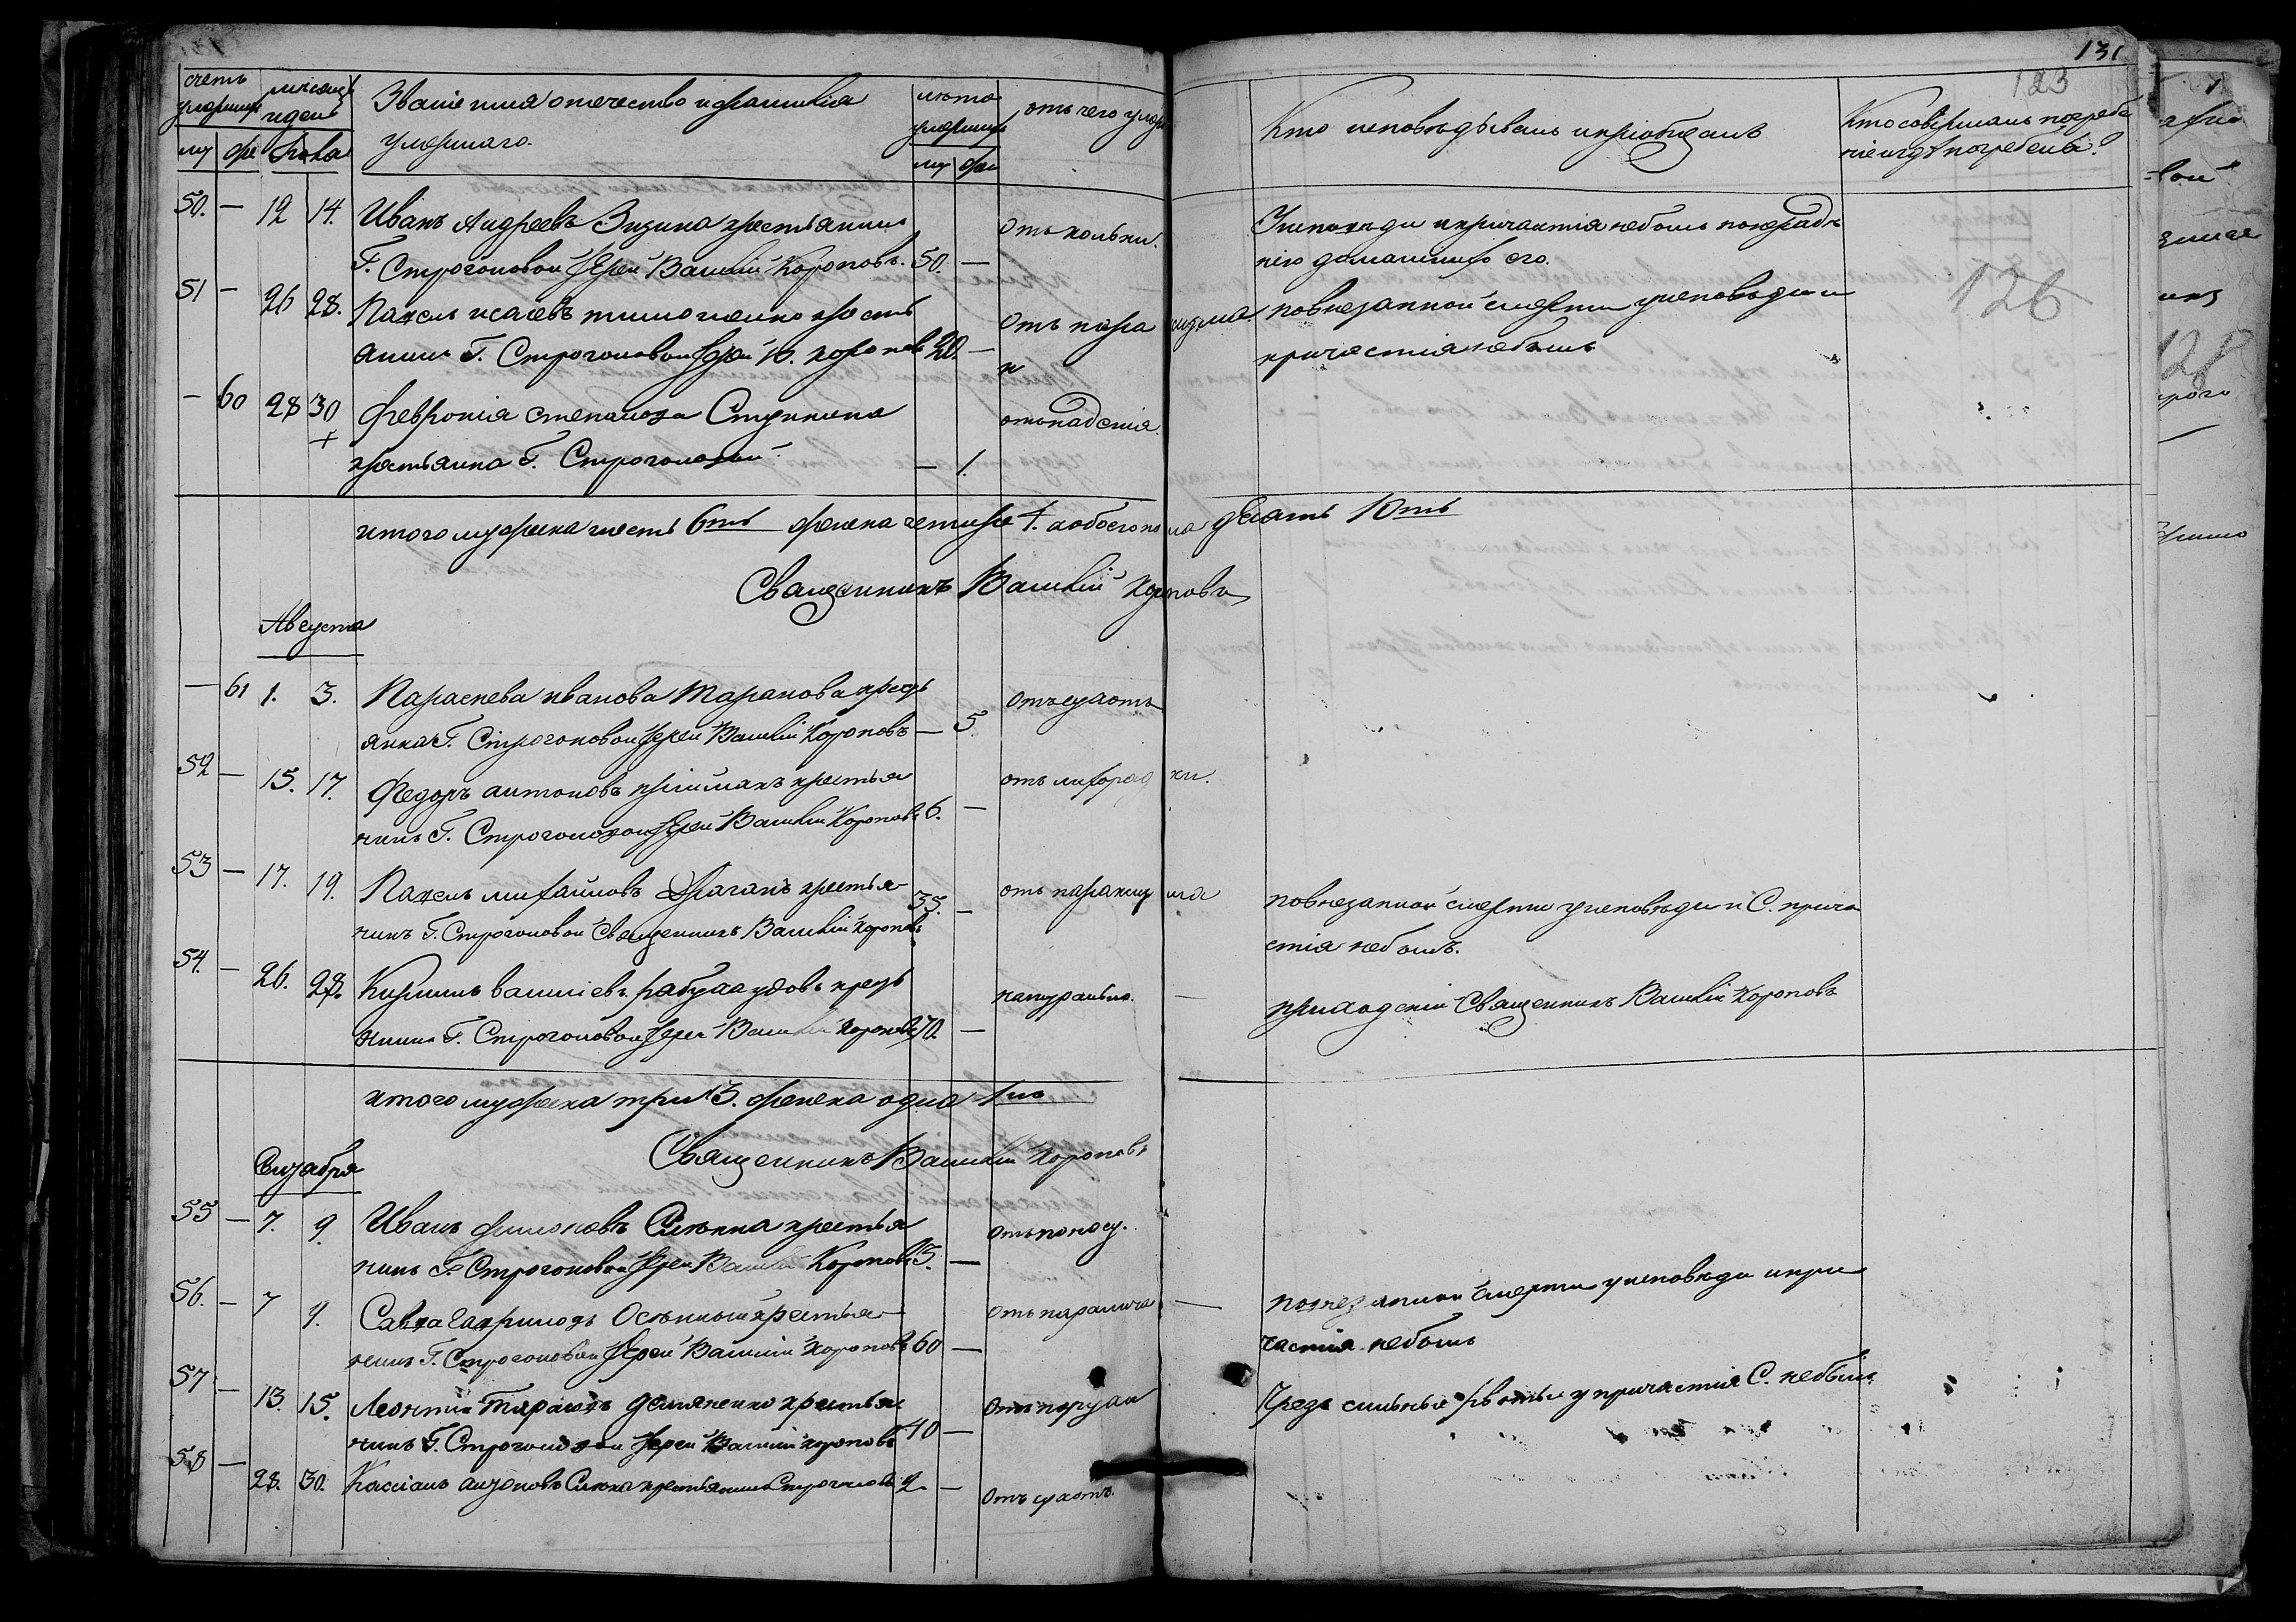 131
123
счетъ умершихъ
месяцъ и день
Званіе имя отечество и фамилія умершаго.
лета умершихъ
отъ чего умеръ
Кто исповѣдывалъ и пріобщалъ
Кто совершалъ погребе
ніе и гдѣ погребены?
му фе
му
50. — 12 14. Иванъ Андреевъ крестьянинъ
Г. Строгоновой Іерей Василій Короповъ. 50. —
У исповѣди и причастія не былъ по нерадѣ
нію домашнихъ его.
51 — 26 28. Павелъ Исаевъ Тимошенко кресть
янинъ Г. Строгоновой Іерей В. Короповъ 20. —
отъ пара ксизма
по внезапной смерти у исповѣди и
причастія не былъ
126
— 60 28 30 Февронія степанова Ступкина
крестьянка Г. Строгоновой — 1.
отъ падения.
итого мужеска шесть 6ть женска четыре 4. а обоего пола десять 10ть
Священникъ Василій Короповъ
Августа
— 61 1. 3. Параскева иванова Таранова кресть
янка Г. Строгоновой Іерей Василій Короповъ — 5.
отъ сухотъ
52 — 15. 17. Федоръ антоновъ пріймакъ крестья
нинъ Г. Строгоновой Іерей Василій Короповъ 6. —
отъ лихорад ки.
53 — 17. 19. Павелъ михайловъ Драганъ крестья-
нинъ Г. Строгоновой Священникъ Василій Короповъ 35. —
отъ параксиз ма
по внезапной смерти у исповѣди и С. прича
стія не былъ.
54. — 26. 28. Кирилъ василіевъ кресть
янинъ Г. Строгоновой Іерей Василій Короповъ 70. —
натурально. —
приходскій Священникъ Василій Короповъ
итого мужеска три 3. женска одна 1на
Священникъ Василій Короповъ
Сентября
55 — 7. 9. Иванъ филоновъ крестья
нинъ Г. Строгоновой Іерей Василій Короповъ —
отъ поносу.
56. — 7 9. Савва Гавриловъ крестья
нинъ Г. Строгоновой Іерей Василій Короповъ 60 —
отъ паралича —
по внезапной смерти у исповѣди и при
частія не былъ
57 — 13. 15. Леонтій Тарасовъ Демяненко крестья
нинъ Г. Строгоновой Іерей Василій Короповъ 40 —
Чрезъ сильные рвоты у причастія С. не былъ
58 — 28. 30. Кассіанъ крестьянинъ Строгоновой 2 —
отъ сухотъ.
128